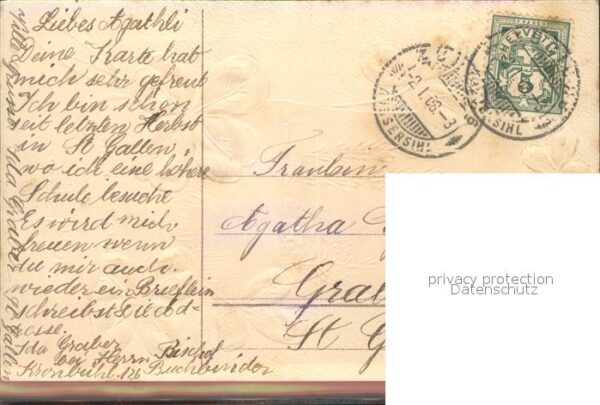 Liebes Agathli
Deine Karte hat
mich sehr gefreut
Ich bin schon
seit letzten Herbst
in St Gallen,
wo ich eine höhere
Schule besuche
Es wird mich
freuen wenn
du mir auch
wieder ein Brieflein
schreibst
Ida Graber
bei Herrn Bischof
Kronbühl 126 Buchbinder
Ida Graber St Gallen
Fräulein
Agatha
St G
HELVETIA
FRANCO
5
AUSSERSIHL
privacy protection
Datenschutz